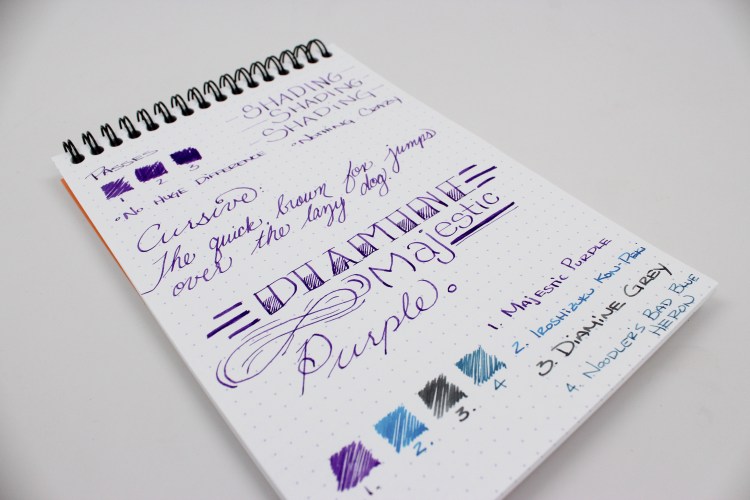 SHADING
SHADING
SHADING
"NOTHING CRAZY
PASSES
1 2 3
"NO HUGE DIFFERENCE
Cursive:
The quick brown fox jumps
over the lazy dog.
DIAMINE
Majestic
Purple.
1. MAJESTIC PURPLE
2. IROSHIZUKU KON-PEKI
3. DIAMINE GREY
4. NOODLERS BAD BLUE
HERON
1.
2.
3.
4